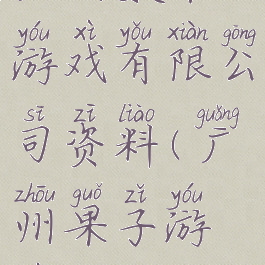 yóu xì yǒu xiàn gōng
游戏有限公
sī zī liào guǎng
司资料(广
zhōu guǒ zǐ yóu
州果子游